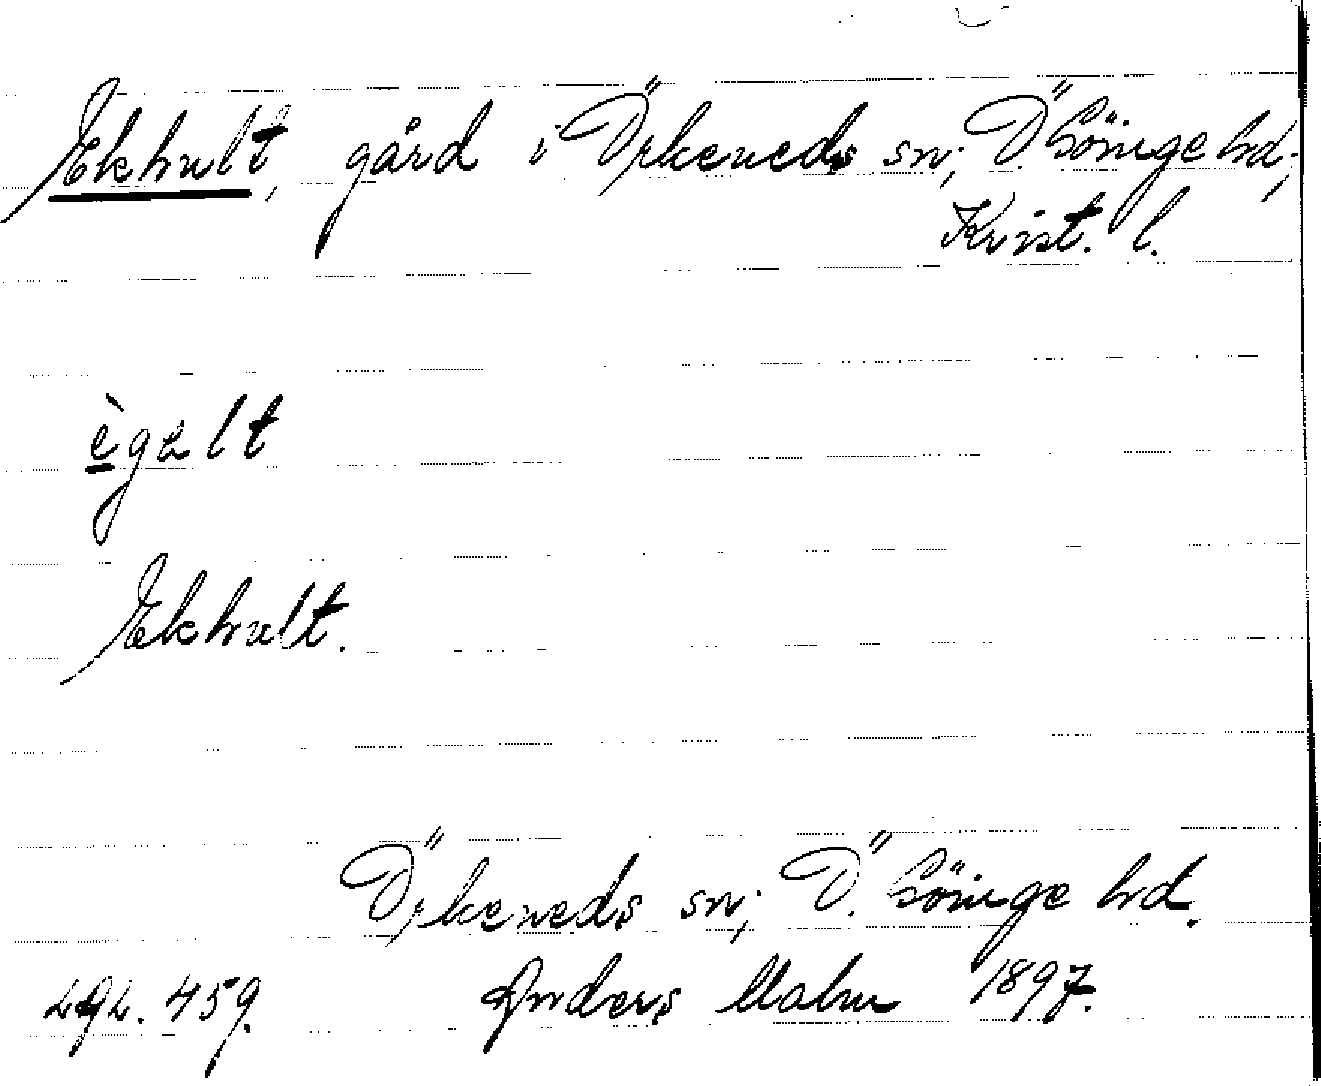 Ekhult, gård i Örkeneds sn; Ö. Göinge hd;
Krist. l.
ègalt
Ekhult.
Örkeneds sn; Ö. Göinge hd.
459. Anders Malm 1897.